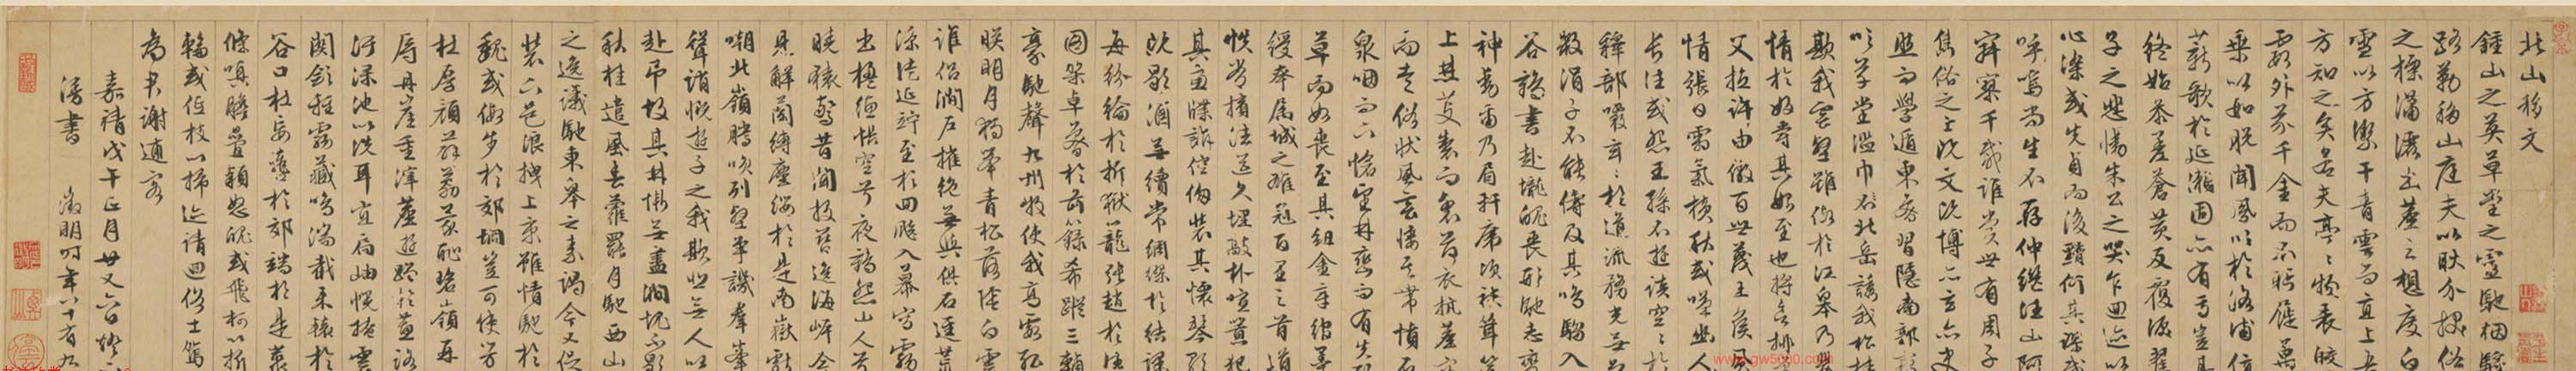 北山移文
鍾山之英草堂之靈馳烟驛
路勒移山庭夫以耿介拔俗
之標瀟灑出塵之想度白
雪以方潔干青雲而直上吾
方知之矣若夫亭亭物表皎
霞外芥千金而不眄屣萬
乘以如脫聞鳳吹於洛浦值
薪歌於延瀨固亦有焉豈其
終始參差蒼黃反覆淚翟
子之悲慟朱公之哭乍迴迹以
心染或先貞而後黷何其謬哉
嗚呼尚生不存仲氏既往山阿
寂寥千載誰賞世有周子
雋俗之士既文既博亦玄亦史
然而學遁東魯習隱南郭
以草堂濫巾於北岳誘我松桂
欺我雲壑雖假容於江皋乃纓
情於好爵其始至也將欲排巢
父拉許由傲百世蔑王侯風
情張日霜氣橫秋或嘆幽人
長往或怨王孫不遊談空空於
釋部覈玄玄於道流務光何
數涓子不能儔及其鳴騶入
谷鶴書赴隴魄喪形馳志變
神動爾乃眉軒席次袂聳筵
上焚芰製而裂荷衣抗塵容
而走俗狀風雲悽其帶憤石
泉咽而下愴望林巒而有失
草而如喪至其紐金章綰墨
綬跨屬城之雄冠百里之首道
帙長擯法筵久埋敲朴喧囂犯
其慮牒訴倥傯裝其懷琴歌
既斷酒無續常綢繆於結課
每紛綸於折獄籠張趙於往
圖架卓魯於前籙希蹤三輔
豪馳聲九州牧使我高霞孤
映明月獨舉青松落陰白雲
誰侶澗戶摧絕無與俱石逕荒
涼徒延佇至於迴飆入幕寫霧
出楹蕙帳空兮夜鶴怨山人去
曉猿驚昔聞投簪逸海岸今
見解蘭縛塵纓於是南嶽獻
嘲北嶺騰笑列壑爭譏攢峯
竦誚慨遊子之我欺悲無人以
赴弔故其林慚無盡澗愧不歇
秋桂遣風春蘿罷月馳西山
之逸議馳東皋之素謁今又促
裝下邑浪拽上京雖情馳於
魏或假步於郊坰豈可使芳
杜厚顏薜荔蒙恥碧嶺再
辱丹崖重滓塵遊躅於蕙路
汙淥池以洗耳宜扃岫幌掩雲
關斂輕霧藏鳴湍截來轅於
谷口杜妄轡於郊端於是叢
條嗔膽疊穎怒魄或飛柯以折
輪或低枝以掃迹請迴俗士駕
為君謝逋客
嘉靖戊午正月廿又六日燈下
漫書 徵明時年八十有九
www.gw5000.com